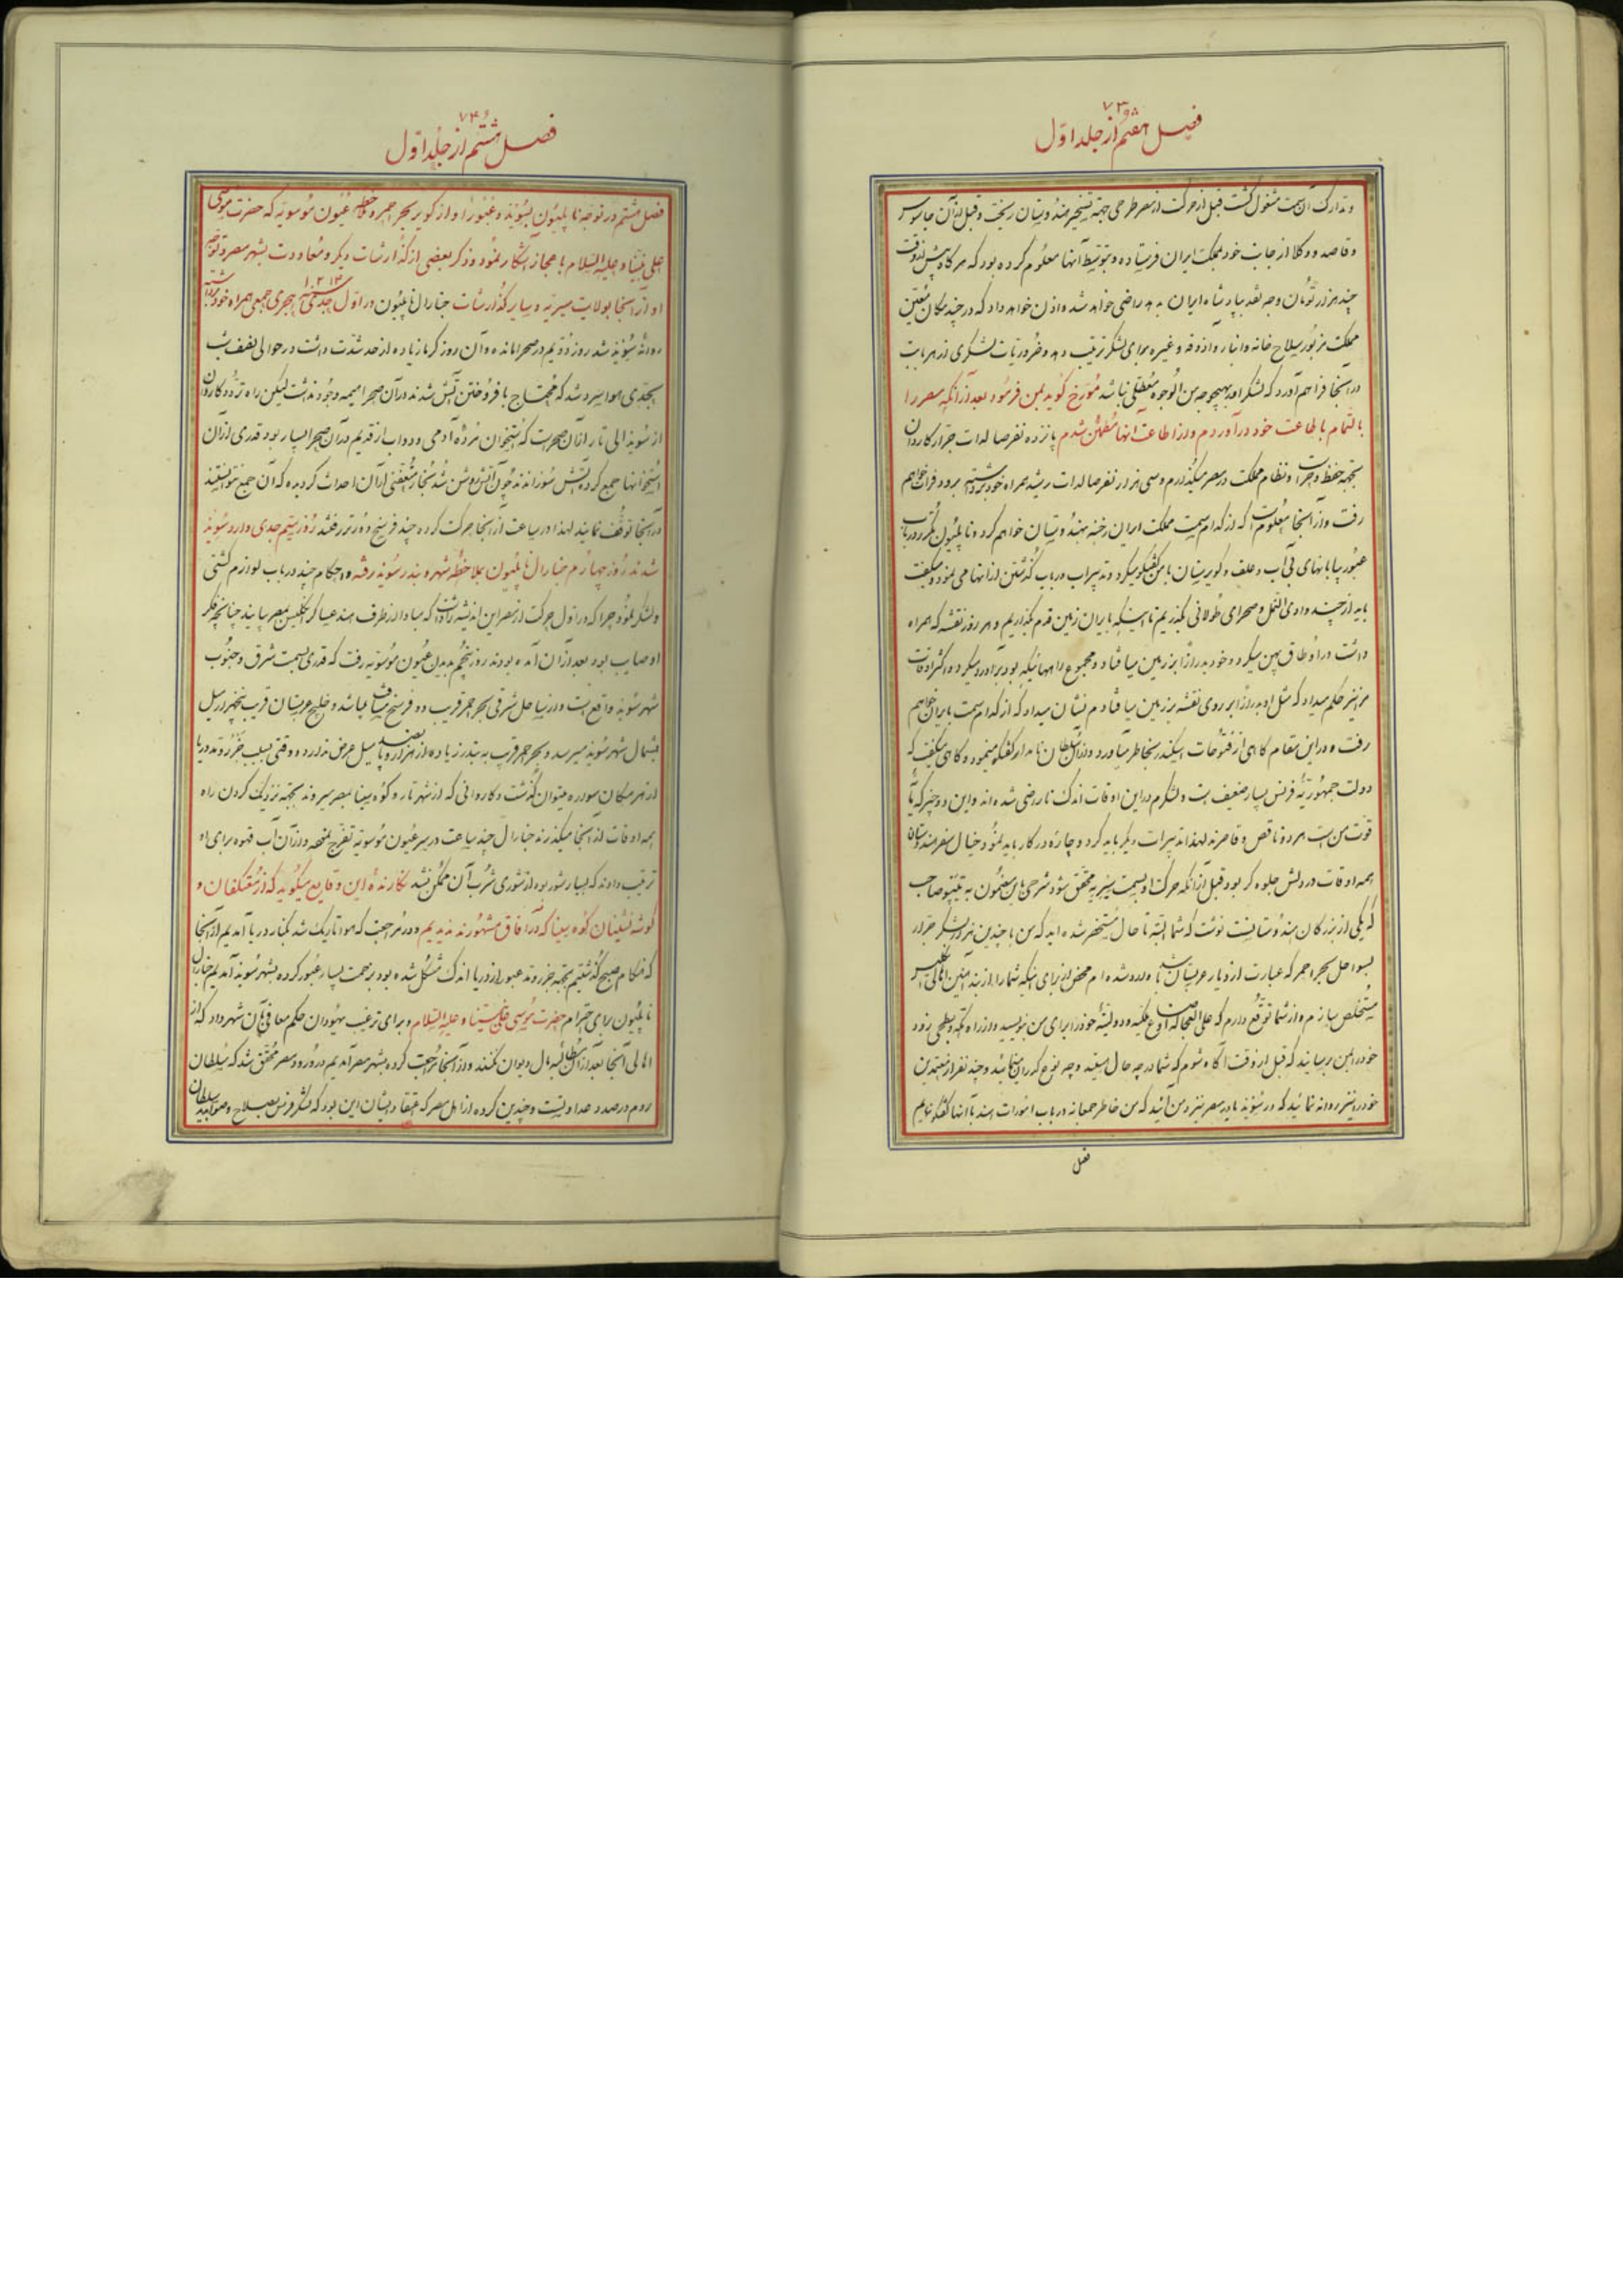 ۷۳
فصل هفتم از جلد اوّل
و تدارک آن سمت مشغول گشت قبل از حرکت از مصر طرحی جهة تسخیر هندوستان ریخت و قبل از آن جاسوس
و قاصد و وکلا از جانب خود بمملکت ایران فرستاده و بتوسّط آنها معلوم کرده بود که هرگاه پیش از وقت
چند هزار تومان وجه نقد بپادشاه ایران بدهد راضی خواهد شد و اذن خواهد داد که در چند مکان معیّن
مملکت مزبور سلاح خانه و انبار و آذوقه و غیره برای لشکر ترتیب دهد و ضروریّات لشکری از هر بابت
در آنجا فراهم آورد که لشکر او را بهیچوجه من الوجوه معطّلی نباشد مورّخ گوید بمن فرمود بعد از آنکه مصر را
بالتّمام باطاعت خود درآوردم و از اطاعت آنها مطمئن شدم پانزده نفر صالدات جرّار کاردان
بجهة حفظ و حراست و نظام مملکت در مصر میگذارم و سی هزار نفر صالدات رشید همراه خود برداشته برود فرات خواهم
رفت و از آنجا معلومست که از کدام سمت مملکت ایران رخنه بهندوستان خواهم کرد و ناپلیون مکرّر در باب
عبور بیابانهای بی آب و علف و کویرستان با من گفتگو میکرد و تدبیرات در باب گذشتن از آنها می نمود و میگفت
باید از چند وادی النّمل و صحرای طولانی بگذریم تا اینکه بایران زمین قدم بگذاریم و هر روز نقشه که همراه
داشت در اوطاق پهن میکرد و خود بدرازا بر زمین میافتاد و مجموع راههائیکه بود برآورد میکرد و اکثر اوقات
مرا نیز حکم میداد که مثل او بدرازا بر روی نقشه بر زمین میافتادم نشان میداد که از کدام سمت بایران خواهیم
رفت و در این مقام گاهی از فتوحات اسکندر بخاطر میآورد و از آن سلطان نامدار گفتگو مینمود و گاهی میگفت که
دولت جمهوریّهٔ فرنس بسیار ضعیف است و لشکرم در این اوقات اندک ناراضی شده اند و این دو چیز که مایهٔ
قوّت من است هر دو ناقص و قاصرند لهذا تدبیرات دیگر باید کرد و چاره در کار باید نمود و خیال سفر هندوستان
همه اوقات در دلش جلوه گر بود قبل از آنکه حرکت او بسمت سیریه محقّق شود شرحی باین مضمون به تیپو صاحب
که یکی از بزرگان هندوستانست نوشت که شما البتّه تا حال مستحضر شده اید که من با چندین هزار لشکر جرّار
بسواحل بحر احمر که عبارت از دیار عربستان باشد وارد شده ام محض از برای اینکه شما را از بند آهنین اهالی انگلیس
مستخلص سازم و از شما توقّع دارم که علی العجاله اوضاع ملکیّه و دولتیّهٔ خود را برای من بنویسید و از راه مکّه و مسقط بزودی
خود را بمن برسانید که قبل از وقت آگاه شوم که شما در چه حال هستید و چه نوع گذران مینمائید و چند نفر از معتمدین
خود را نیز روانه نمائید که در سویز یا در مصر نزد من آیند که من خاطر جمعانه در باب امورات هند با آنها گفتگو نمایم
فصل
۷۴
فصل هشتم از جلد اوّل
فصل هشتم در توجّه ناپلیون بسویز و عبور او از کویر بحر احمر و ملاحظه عیون موسویّه که حضرت موسی
علی نبیّنا و علیه السّلام باعجاز آشکار نمود و ذکر بعضی از گذارشات دیگر و معاودت بشهر مصر و توجّه
او از آنجا بولایت سیریّه و سایر گذارشات جنارال ناپلیون در اوّل جدی سنه ۱۲۱۳ هجری جمعی همراه خود برداشته
روانهٔ سویز شد روز دویم در صحرا مانده و آن روز گرما زیاده از حد شدّت داشت در حوالی نصف شب
بحدّی هوا سرد شد که محتاج بافروختن آتش شدند در آن صحرا هیمه وجود نداشت لیکن راه تردّد کاروان
از سویز الی تار از آن صحراست که استخوان مردهٔ آدمی و دواب از قدیم در آن صحرا بسیار بود قدری از آن
استخوانها جمع کرده آتش سوزاندند چون آتش روشن شد بخار متعفّنی از آن احداث گردیده که آن جمع نتوانستند
در آنجا توقّف نمایند لهذا در ساعت از آنجا حرکت کرده چند فرسخ دورتر رفتند روز سیّم جدی وارد سویز
شدند روز چهارم جنارال ناپلیون بملاحظهٔ شهر و بندر سویز رفته و احکام چند در باب لوازم کشتی
و لنگر نمود چرا که در اوّل حرکت از مصر این اندیشه را داشت که مبادا از طرف هند عساکر انگلیس بمصر بیایند چنانچه فکر
او صایب بود بعد از آن آمده بودند روز پنجم بدیدن عیون موسویّه رفت که قدری بسمت شرق و جنوب
شهر سویز واقع است و از ساحل شرقی بحر احمر قریب دو فرسخ مسافت میباشد و خلیج عربستان قریب پنجهزار میل
بشمال شهر سویز میرسد و بحر احمر قریب به بندر زیاده از هزار و پانصد میل عرض ندارد و وقتی بسبب جزر و مد دریا
از هر مکان سواره میتوان گذشت و کاروانی که از شهر تار و کوه سینا بمصر میروند بجهة نزدیک کردن راه
همه اوقات از آنجا میگذرند جنارال چند ساعت در سر عیون موسویّه تفرّج نموده و از آن آب قهوه برای او
ترتیب دادند که بسیار شور بود از شوری شرب آن ممکن نشد نگارندهٔ این وقایع میگوید که از معتکفان و
گوشه نشینان کوه سینا که در آفاق مشهورند ندیدیم و در مراجعت که هوا تاریک شد بکنار دریا آمدیم از آنجا
که هنگام صبح گذشتیم بجهة جزر و مد عبور از دریا اندک مشکل شده بود بزحمت بسیار عبور کرده بشهر سویز آمدیم جنارال
ناپلیون برای احترام حضرت موسی علی نبیّنا و علیه السّلام و برای ترغیب یهودان حکم معافی بآن شهر داد که از
اهالی آنجا بعد از آن مطالبهٔ مال دیوان نکنند و از آنجا مراجعت کرده بشهر مصر آمدیم در ورود مصر محقّق شد که سلطان
روم در صدد عداوتست و چندین گروه از اهل مصر که اعتقاد ایشان این بود که لشکر فرنس بصلاح و صوابدید سلطان